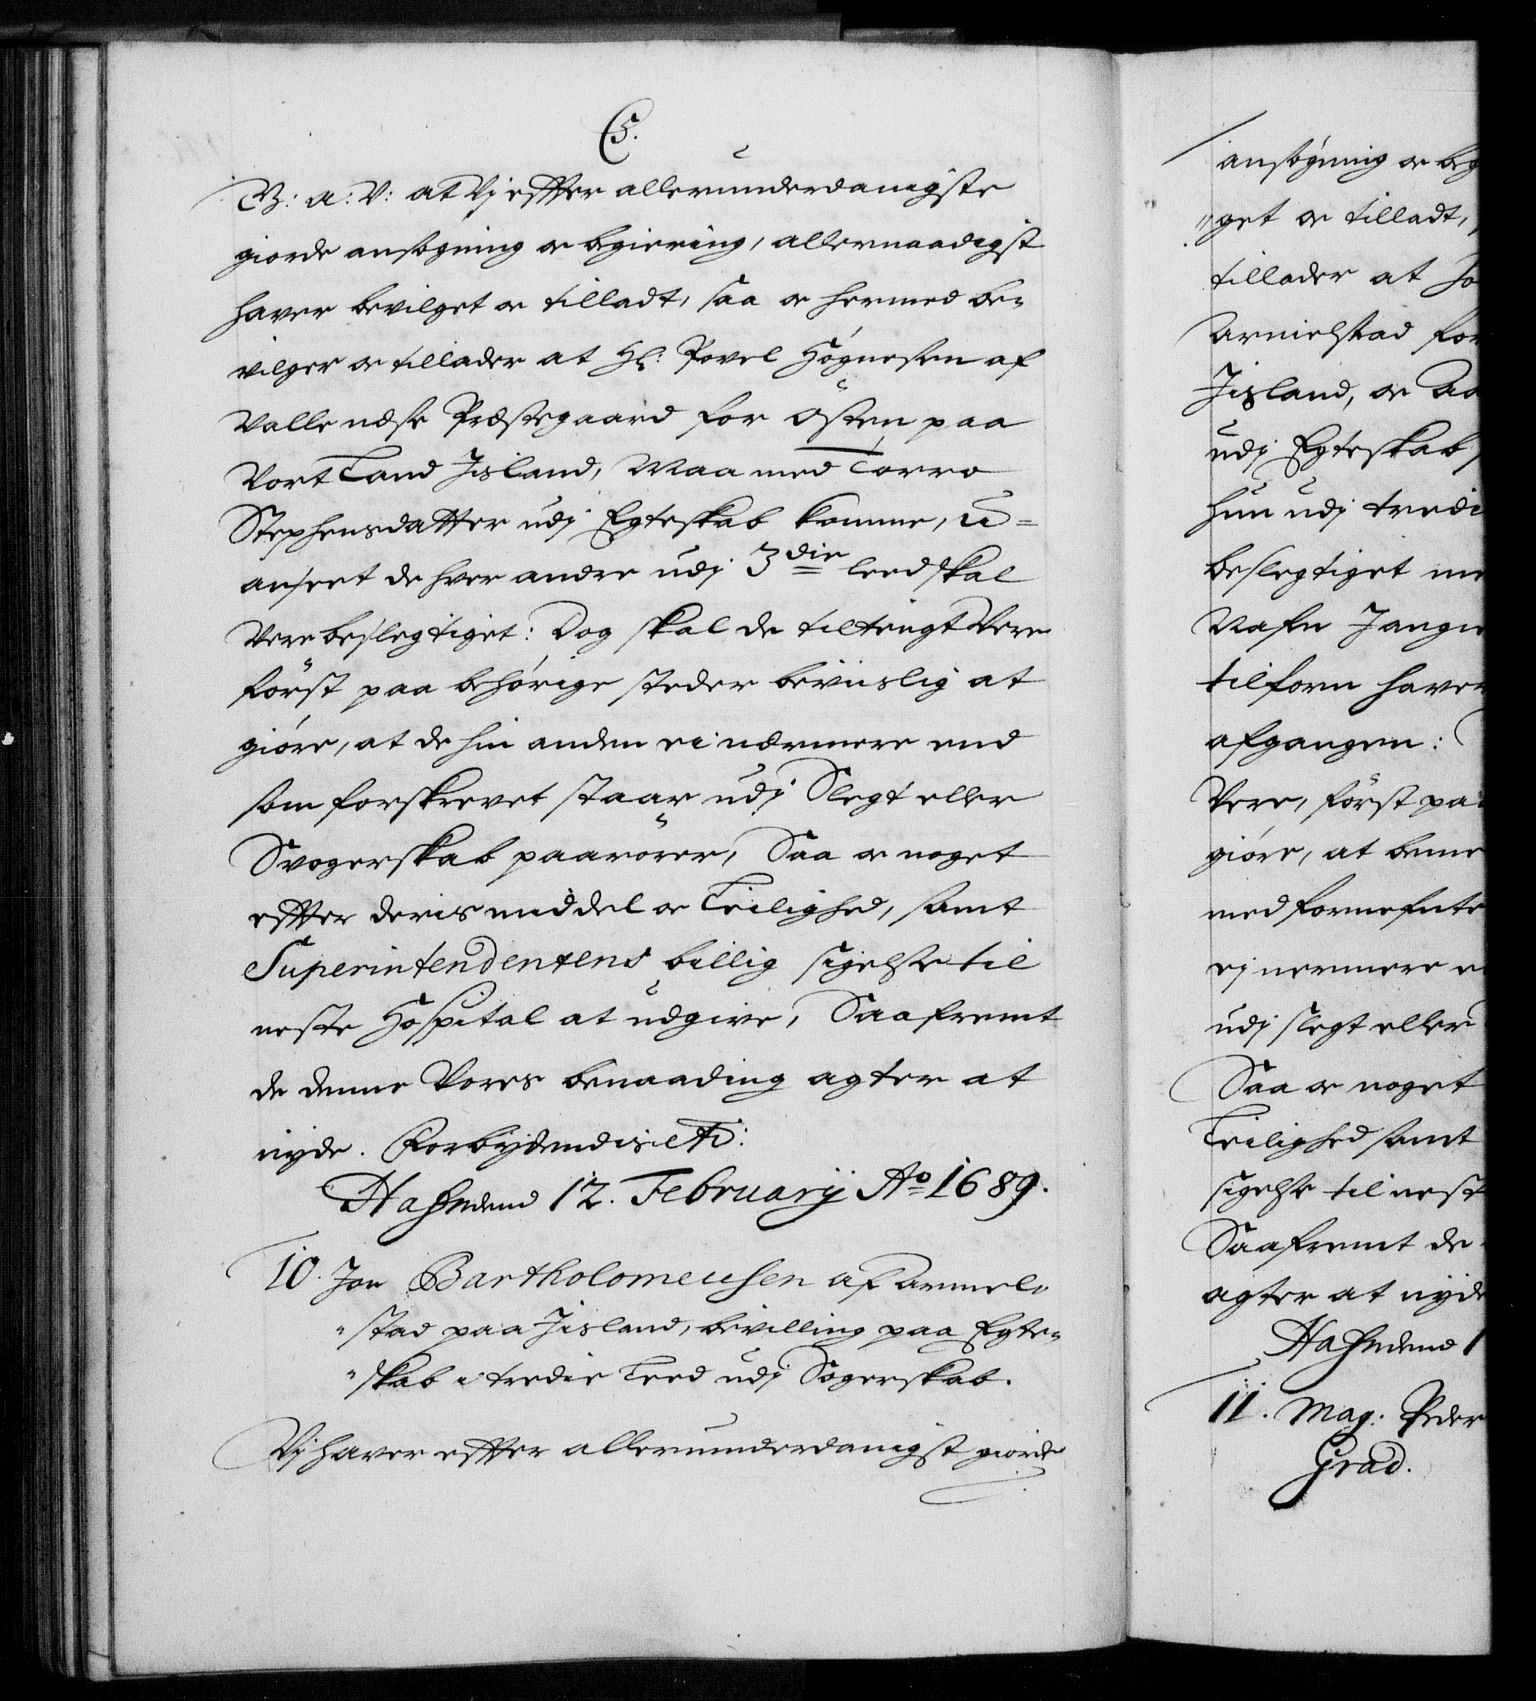 C5.
G: a: V: at Vj effter allerunderdanigste
giorde ansögning oc begiering, allernaadigst
haver bevilget oc tilladt, saa oc hermed be-
vilger oc tillader at Hr: Povel Högnesen af
Valle næse Præstegaard for östen paa
Vort Land Jisland, Maa med Torro
Stephensdatter udj Egteskab komme, u-
anseet de hver andre udj 3die leed skal
Vere beslegtiget: Dog skal de tiltengt Vere
först paa behörige steder beviislig at
giöre, at de hin anden ei nærmere end
som forskrevet staar udj Slegt eller
Svogerskab paarörer, Saa oc noget
effter deris middel oc Leilighed, samt
Superintendentens billig sigelse til
neste Hospital at udgive, Saafremt
de denne Vores benaading agter at
nyde. Forbydendis etc:
Hafniæ den 12. Februarij Ao 1689.
10. Jon Bartholomeusen af Armels
stad paa Jisland, bevilling paa Egte-
skab i tredie Leed udj Sogerskab.
Vj haver effter allerunderdanigst giorde
ansögning oc beg
get oc tilladt,
tillader at Jo
Armelstad for
Jisland, oc Aa
udj Egteskab
hun udj tredi
beslegtiget me
Nafn Jangie
tilforn haver
afgangen:
Vere, först paa
giöre, at benne
med fornefnte
ej nermere e
udj slegt eller
Saa oc noget
Leilighed samt
sigelse til nest
Saafremt de
agter at nyde
Hafniæ den 1
11. Mag: Peder
Grad.